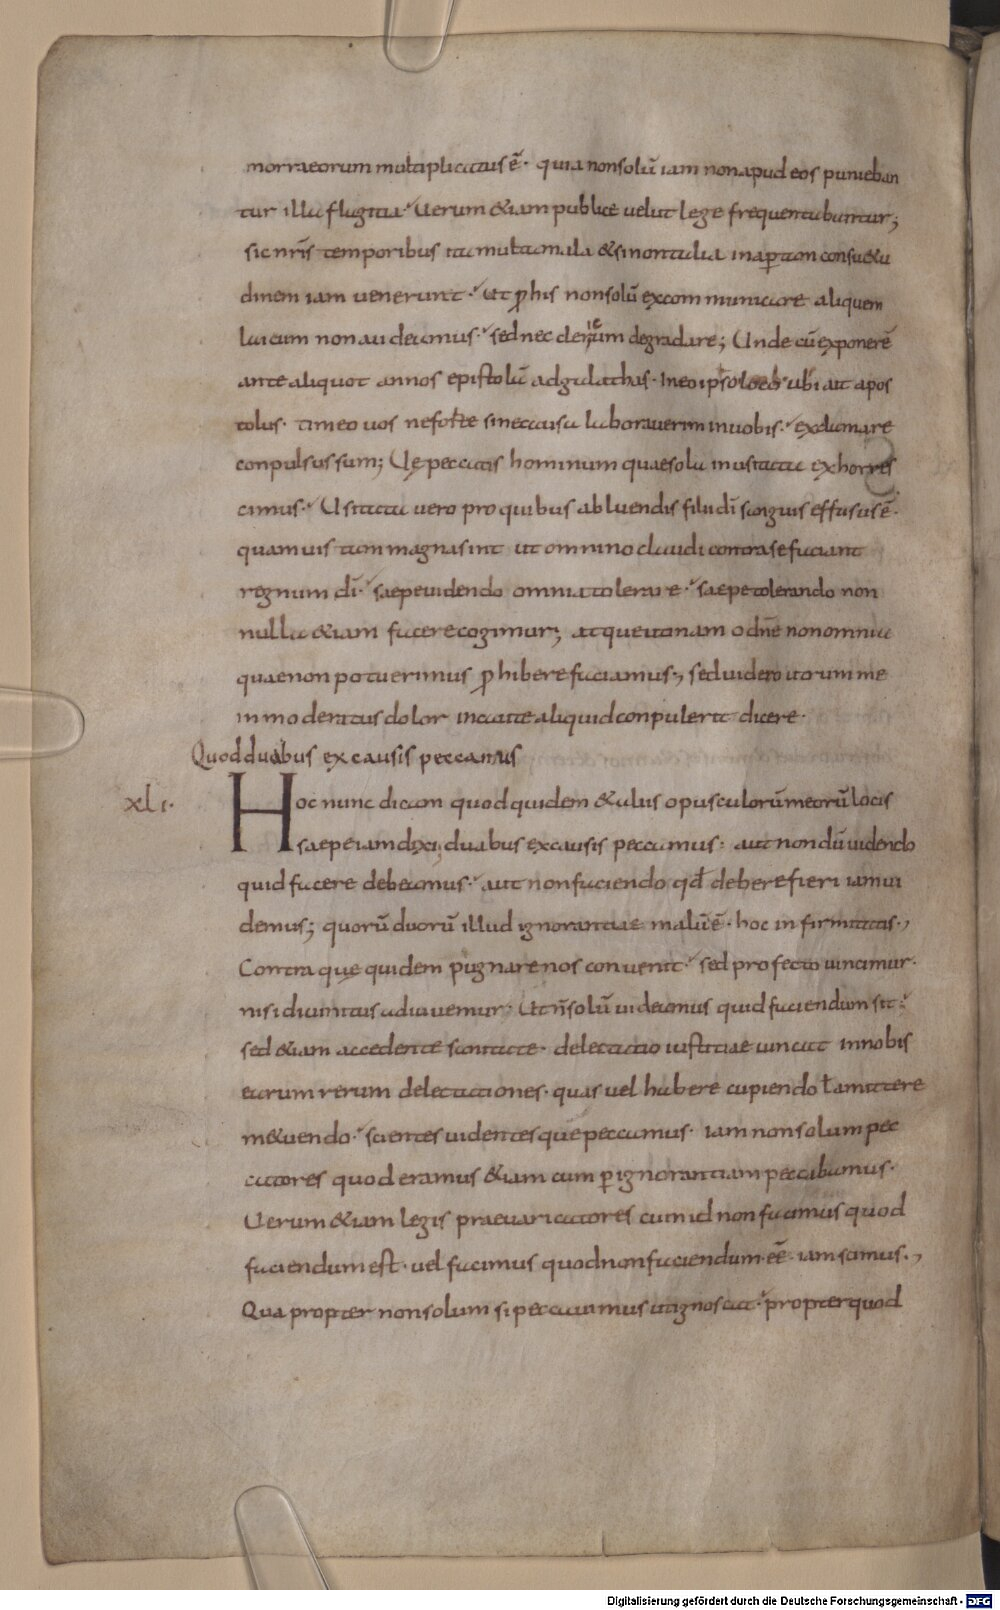 morraeorum multiplicatus ē. quia non solū iam non apud eos punieban
tur illa flagitia. Uerum &iam publice uelut lege frequentabantur;
sic nr̄is temporibus ita multa mala &si non talia in aꝑtam consu&u
dinem iam uenerunt. Ut ꝓ his non solū excommunicare aliquem
laicum non audeamus. sed nec clericum degradare; Unde cū exponerē
ante aliquot annos epistolā ad galathas. In eo ipso loco ubi ait apos
tolus. timeo uos ne forte sine causa laborauerim in uobis. exclamare
conpulsus sum; Uę peccatis hominum quae sola inusitata exhorres
cimus. Usitata uero pro quibus abluendis filii dī sanguis effusus ē.
quamuis tam magna sint ut omnino claudi contra se faciant
regnum dī. saepe uidendo omnia tolerare. saepe tolerando non
nulla &iam facere cogimur; atque utinam o dn̄e non omnia
quae non potuerimus ꝓhibere faciamus; sed uidero utrum me
inmoderatus dolor incaute aliquid conpulerit dicere.
Quod duabus ex causis peccamus
xli. Hoc nunc dicam quod quidem & alus opusculorū meorū locis
saepe iam dixi; duabus ex causis peccamus. aut non dū uidendo
quid facere debeamus. aut non faciendo qd̄ debere fieri iam ui
demus; quorū duorū illud ignorantiae malū ē. hoc infirmitatis.,
Contra quę quidem pugnare nos conuenit. sed profecto uincimur.
nisi diuinitus adiuuemur. Ut n̄ solū uideamus quid faciendum sit.
sed &iam accedente sanitate. delectatio iustitiae uincat in nobis
earum rerum delectationes. quas uel habere cupiendo ł amittere
m&uendo. scientes uidentesque peccamus. iam non solum pec
catores quod eramus &iam cum ꝑ ignorantiam peccabamus.
Uerum &iam legis praeuaricatores cum id non facimus quod
faciendum est. uel facimus quod non faciendum eē. iam scimus.,
Qua propter non solum si peccauimus ut ignoscat. propter quod